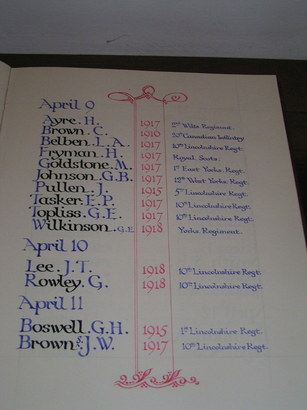 April 9
Ayre. H. 1917 2nd Wilts Regiment.
Brown. C. 1916 20th Canadian Infantry
Belben. L. A. 1917 10th Lincolnshire Regt.
Fryman. H. 1917 Royal Scots.
Goldstone. M. 1917 1st East Yorks. Regt.
Johnson. G.B. 1917 12th West Yorks. Regt.
Pullen. J. 1915 5th Lincolnshire Regt.
Tasker. E. P. 1917 10th Lincolnshire Regt.
Topliss. G. E. 1917 10th Lincolnshire Regt.
Wilkinson. G.E. 1918 Yorks Regiment.
April 10
Lee. J. T. 1918 10th Lincolnshire Regt.
Rowley. G. 1918 10th Lincolnshire Regt.
April 11
Boswell. G.H. 1915 1st Lincolnshire Regt.
Brown. J.W. 1917 10th Lincolnshire Regt.